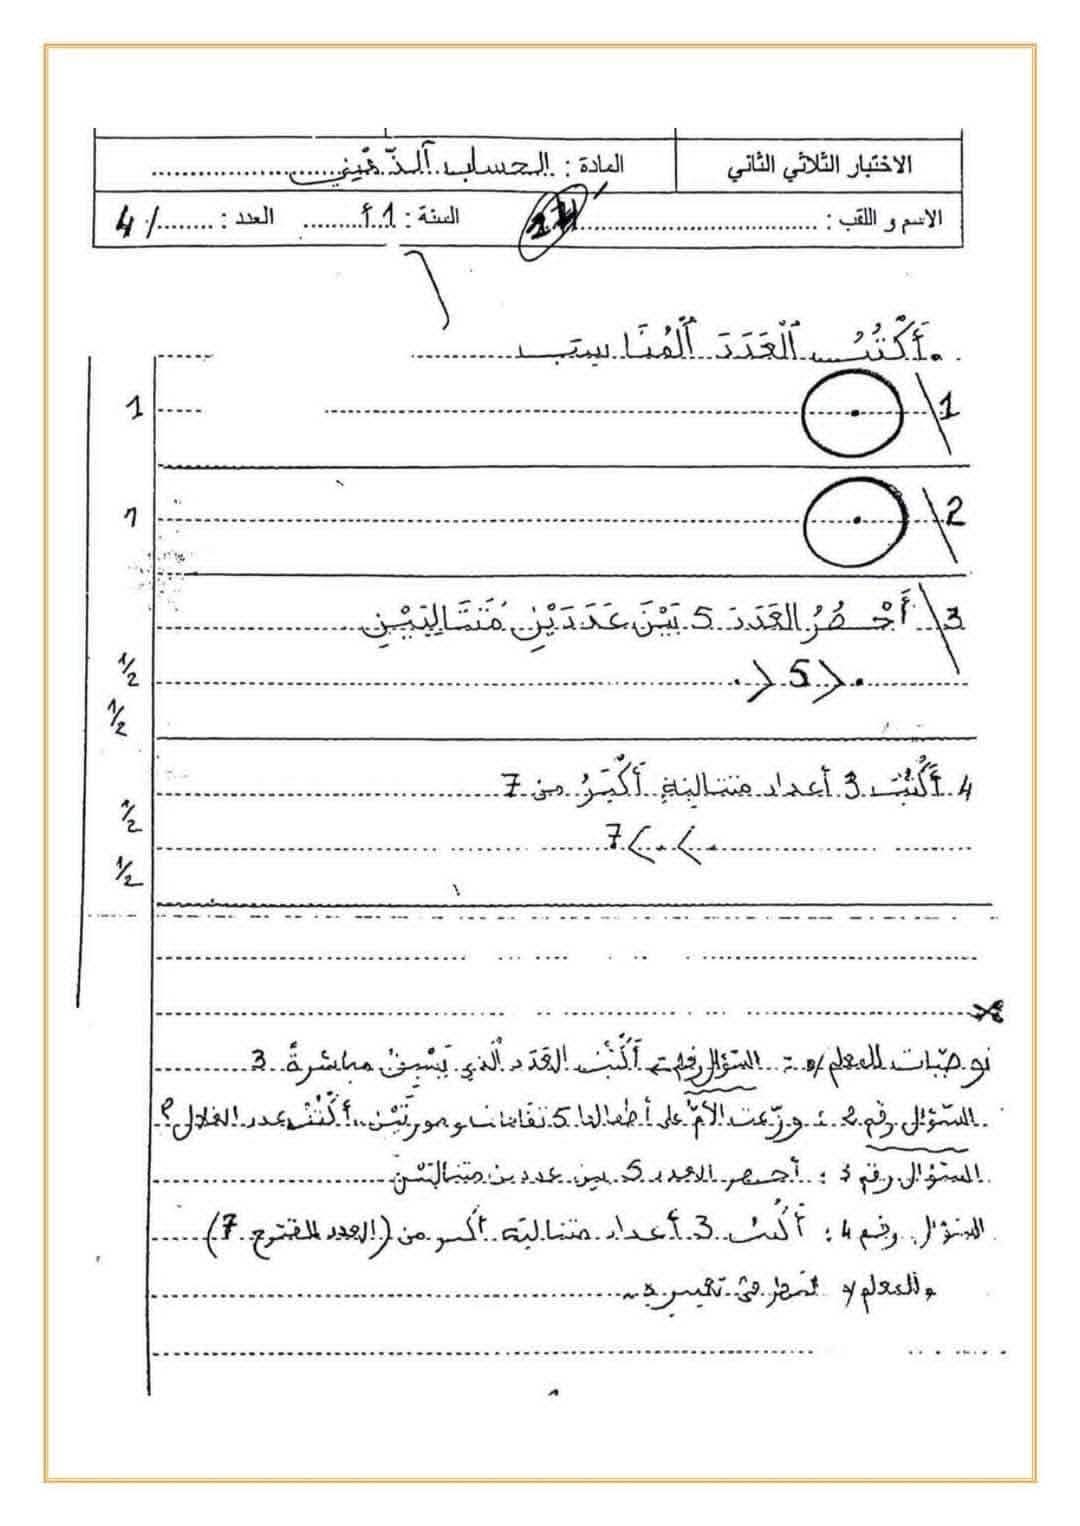 الاختبار الثلاثي الثاني المادة : الحساب الذّهني
الاسم و اللقب : ........ السنة : 1 أ ........ العدد : ......../ 4
.أَكْتُبُ الْعَدَدَ الْمُنَاسِبَ
1\ 1
2\ 1
3\ أَحْصُرُ العَدَدَ 5 بَيْنَ عَدَدَيْنِ مُتَتَالِيَيْنِ
. < 5 > . 1/2
1/2
4 أَكْتُبُ 3 أعداد متتالية أَكْبَرُ من 7
. > . > 7 1/2
1/2
توصيات للمعلم : السّؤال رقم 1 أَكْتُبُ العَدَدَ الّذي يَسْبِقُ مباشرةً 3
السّؤال رقم 2 : وزّعت الأمّ على أطفالها 5 تفاحات و موزتَيْن. أَكْتُبُ عدد الغلال ؟
السّؤال رقم 3 : أحصر العدد 5 بين عددين متتاليين
السؤال رقم 4 : أَكْتُبُ 3 أعداد متتالية أكبر من (العدد المقترح 7)
وللمعلم
1